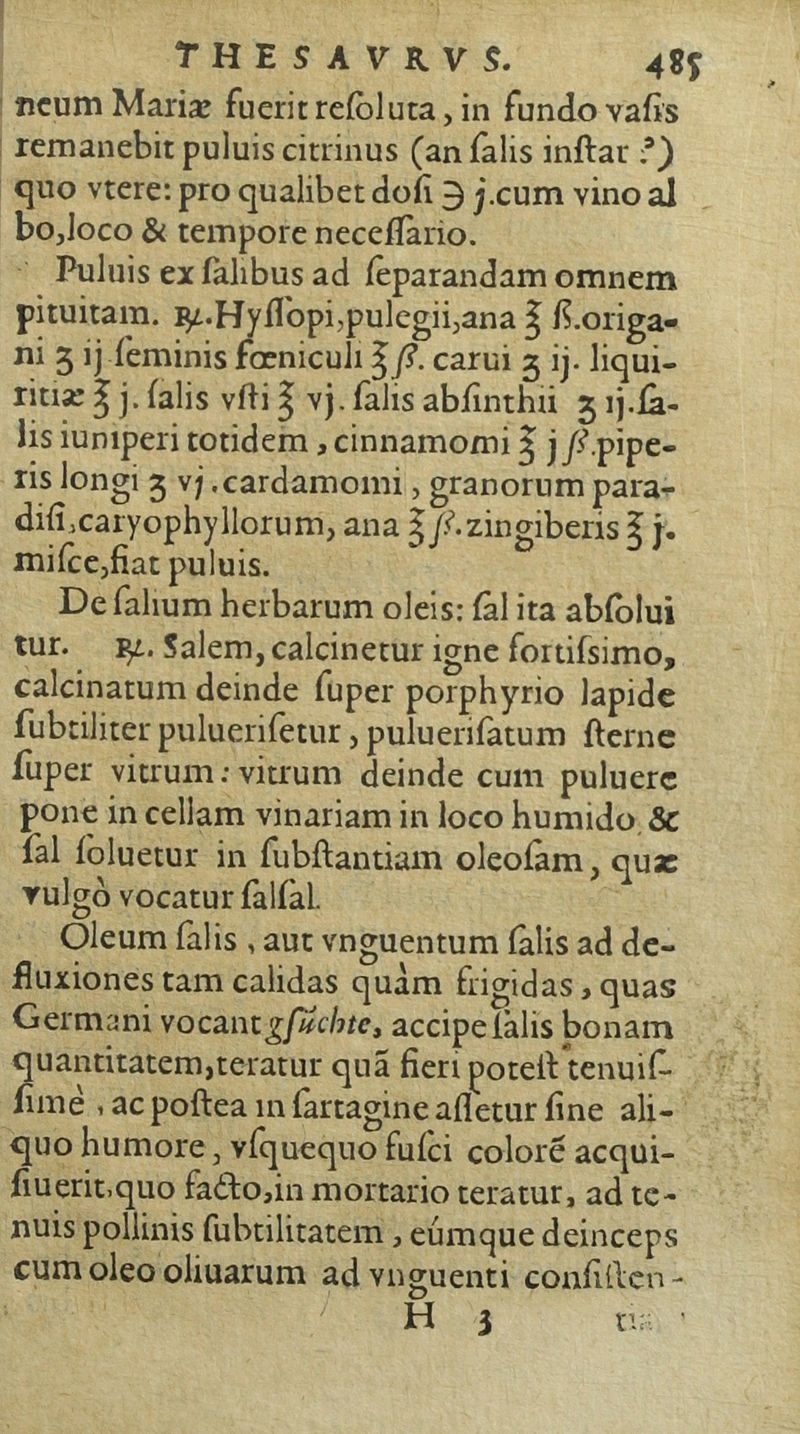 THESAVRVS. 485
neum Mariæ fuerit reſoluta, in fundo vaſis
remanebit puluis citrinus (an ſalis inſtar ?)
quo vtere: pro qualibet doſi ℈ j.cum vino al
bo,loco & tempore neceſſario.
Puluis ex ſalibus ad ſeparandam omnem
pituitam. ℞.Hyſſopi,pulegii,ana ℥ ß.origa-
ni ʒ ij ſeminis fœniculi ℥ ß. carui ʒ ij. liqui-
ritiæ ℥ j. ſalis vſti ℥ vj. ſalis abſinthii ʒ ij.ſa-
lis iuniperi totidem, cinnamomi ℥ j ß.pipe-
ris longi ʒ vj.cardamomi, granorum para-
diſi,caryophyllorum, ana ℥ ß.zingiberis ℥ j.
miſce,fiat puluis.
De ſalium herbarum oleis: ſal ita abſolui
tur. ℞. Salem, calcinetur igne fortiſsimo,
calcinatum deinde ſuper porphyrio lapide
ſubtiliter pulueriſetur, pulueriſatum ſterne
ſuper vitrum: vitrum deinde cum puluere
pone in cellam vinariam in loco humido &
ſal ſoluetur in ſubſtantiam oleoſam, quæ
vulgò vocatur ſalſal.
Oleum ſalis, aut vnguentum ſalis ad de-
fluxiones tam calidas quàm frigidas, quas
Germani vocant gſüchte, accipe ſalis bonam
quantitatem,teratur quã fieri poteſt tenuiſ-
ſimè, ac poſtea in ſartagine aſſetur ſine ali-
quo humore, vſquequo fuſci colorẽ acqui-
ſiuerit,quo facto,in mortario teratur, ad te-
nuis pollinis ſubtilitatem, eúmque deinceps
cum oleo oliuarum ad vnguenti conſiſten-
H 3 tia